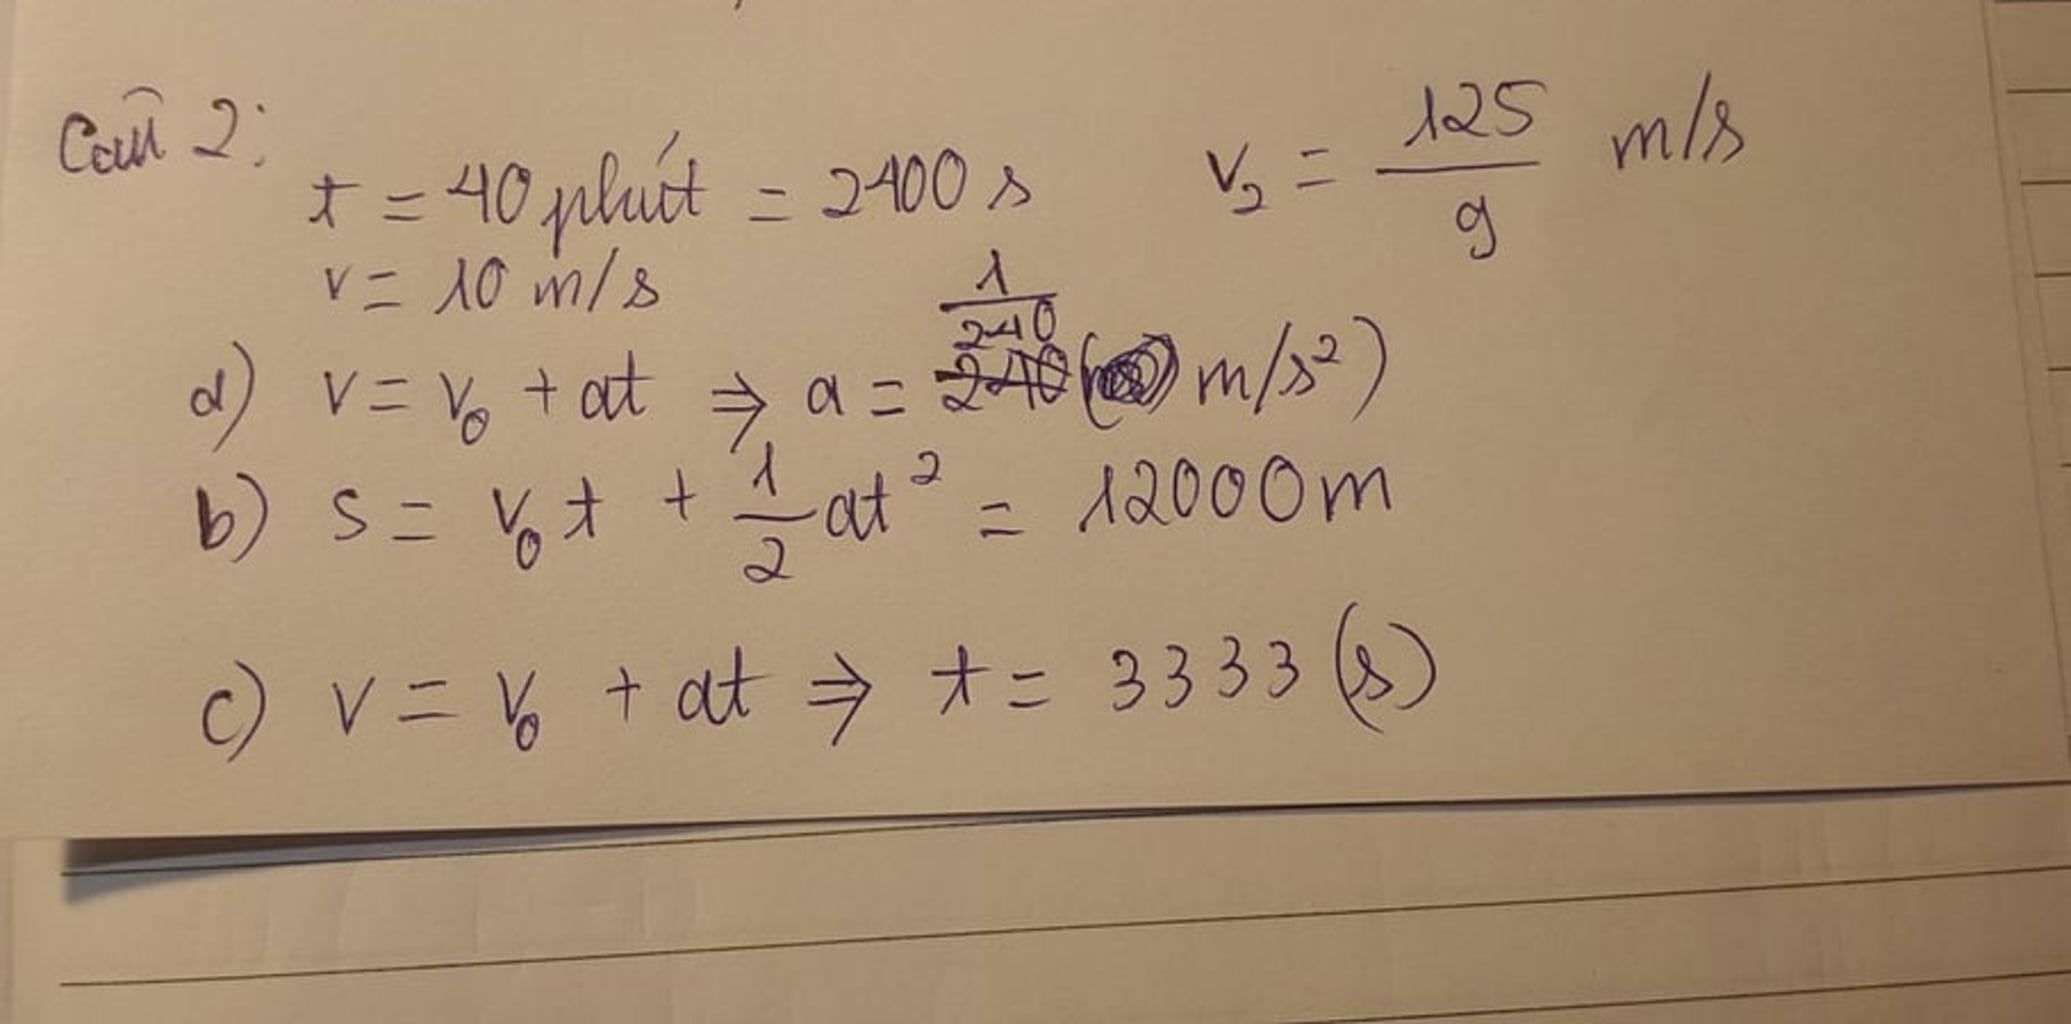 Câu 2:
t = 40 phút = 2400 s
v₂ = 125/9 m/s
v = 10 m/s
a) v = v₀ + at ⇒ a = 1/240 (m/s²)
b) s = v₀t + 1/2 at² = 12000m
c) v = v₀ + at ⇒ t = 3333 (s)